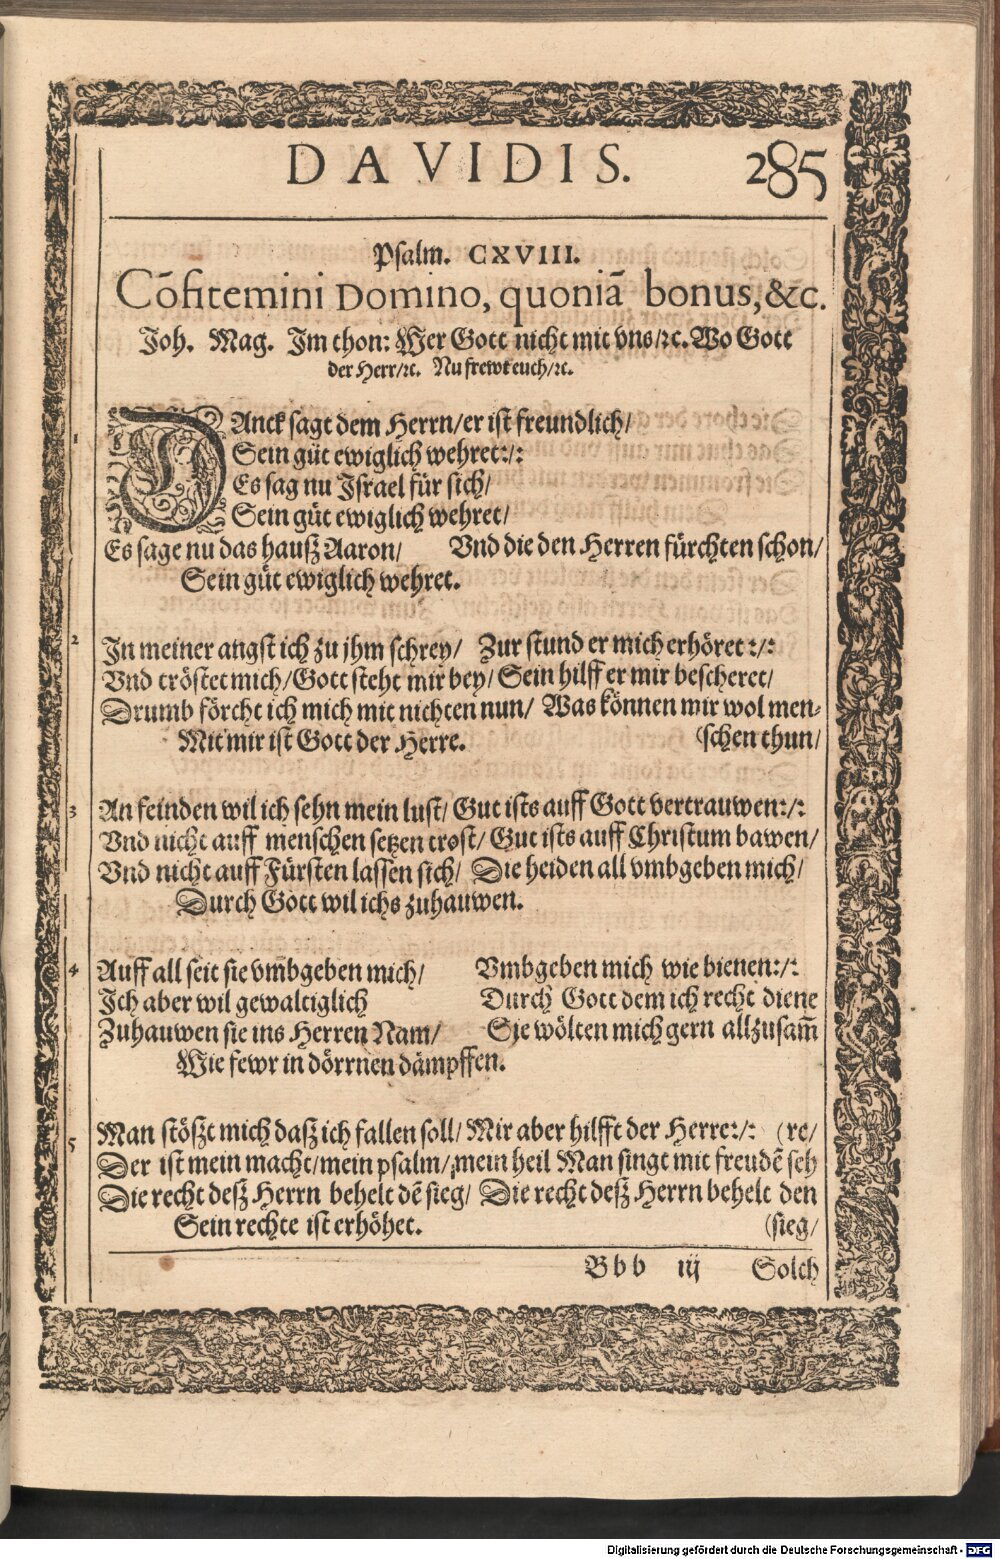 DAVIDIS. 285
Psalm. CXVIII.
Cōfitemini Domino, quoniā bonus, &c.
Joh. Mag. Im thon: Wer Gott nicht mit vns/ꝛc. Wo Gott
der Herr/ꝛc. Nu frewt euch/ꝛc.
1 DAnck sagt dem Herrn/er ist freundlich/
Sein güt ewiglich wehret:/:
Es sag nu Israel für sich/
Sein güt ewiglich wehret/
Es sage nu das hauß Aaron/ Vnd die den Herren fürchten schon/
Sein güt ewiglich wehret.
2 In meiner angst ich zu jhm schrey/ Zur stund er mich erhöret:/:
Vnd tröstet mich/Gott steht mir bey/ Sein hilff er mir bescheret/
Drumb förcht ich mich mit nichten nun/ Was können mir wol men-
Mit mir ist Gott der Herre. (schen thun/
3 An feinden wil ich sehn mein lust/ Gut ists auff Gott vertrauwen:/:
Vnd nicht auff menschen setzen trost/ Gut ists auff Christum bawen/
Vnd nicht auff Fürsten lassen sich/ Die heiden all vmbgeben mich/
Durch Gott wil ichs zuhauwen.
4 Auff all seit sie vmbgeben mich/ Vmbgeben mich wie bienen:/:
Ich aber wil gewaltiglich Durch Gott dem ich recht diene
Zuhauwen sie ins Herren Nam/ Sie wölten mich gern allzusam̄
Wie fewr in dörrnen dämpffen.
5 Man stößt mich daß ich fallen soll/ Mir aber hilfft der Herre:/: (re/
Der ist mein macht/mein psalm/mein heil Man singt mit freudē seh
Die recht deß Herrn behelt dē sieg/ Die recht deß Herrn behelt den
Sein rechte ist erhöhet. (sieg/
Bbb iij Solch
Digitalisierung gefördert durch die Deutsche Forschungsgemeinschaft - DFG